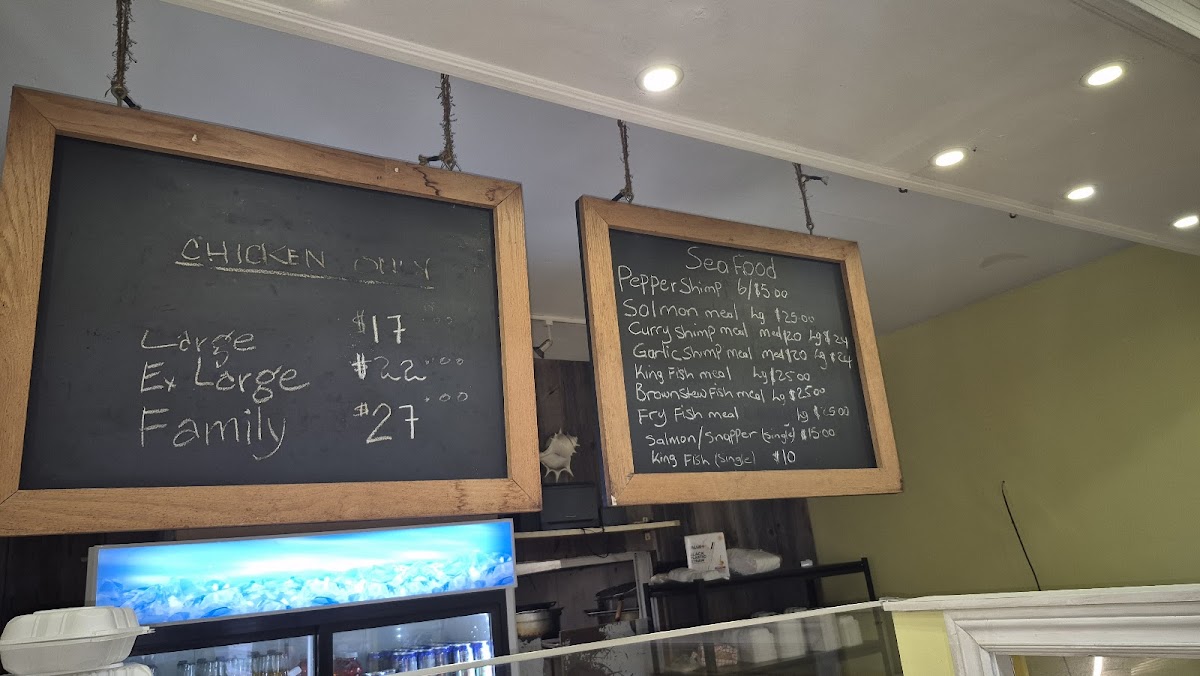 CHICKEN ONLY
Large $17.00
Ex Large $22.00
Family $27.00
Sea Food
Pepper Shimp 6/$5.00
Salmon meal Lg $25.00
Curry shimp meal med $20 Lg $24
Garlic Shimp meal med $20 Lg $24
King Fish meal Lg $25.00
Brown Stew Fish meal Lg $25.00
Fry Fish meal Lg $25.00
Salmon/Snapper (single) $15.00
King Fish (Single) $10